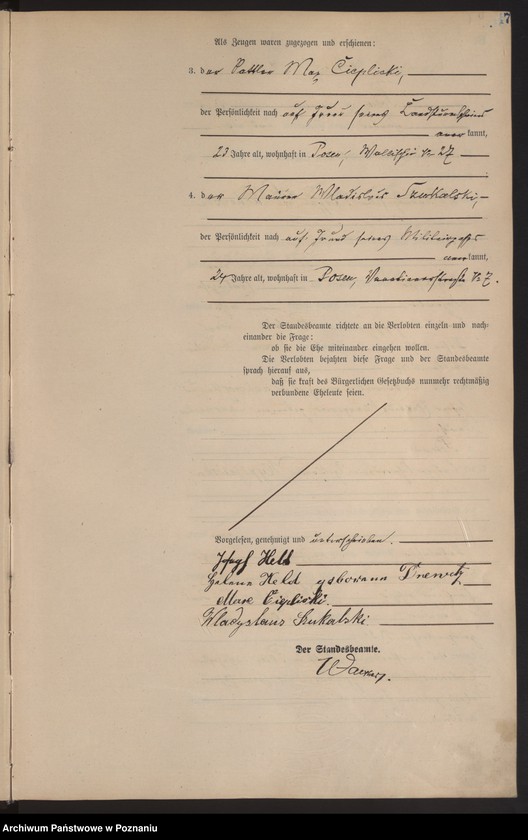 7
Als Zeugen waren zugezogen und erschienen:
3. der Sattler Max Cieplicki,
der Persönlichkeit nach auf Grund seines Landsturmscheins
kannt,
23 Jahre alt, wohnhaft in Posen, Wallischei № 27
4. der Maurer Wladislaus Szukalski,
der Persönlichkeit nach auf Grund seines Militairpasses
kannt,
24 Jahre alt, wohnhaft in Posen, № 7.
Der Standesbeamte richtete an die Verlobten einzeln und nach-
einander die Frage:
ob sie die Ehe miteinander eingehen wollen.
Die Verlobten bejahten diese Frage und der Standesbeamte
sprach hierauf aus,
daß sie kraft des Bürgerlichen Gesetzbuchs nunmehr rechtmäßig
verbundene Eheleute seien.
Vorgelesen, genehmigt und unterschrieben.
Josef Held
Helene Held geborene Drewitz
Max Cieplicki.
Wladyslaus Szukalski
Der Standesbeamte.
Archiwum Państwowe w Poznaniu